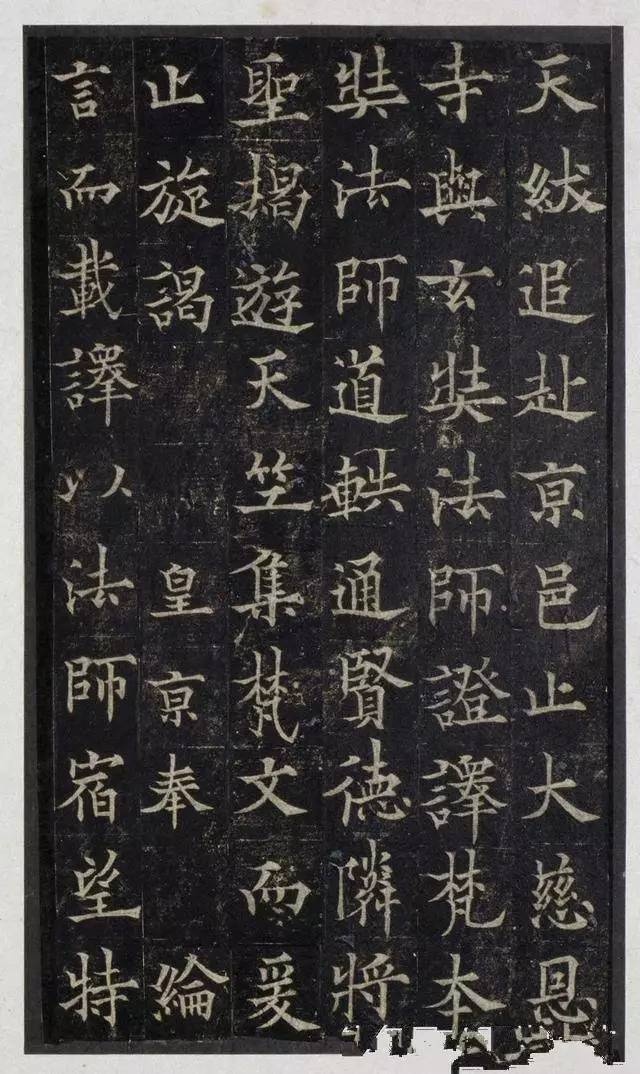 天紱追赴京邑止大慈恩
寺與玄奘法師證譯梵本
奘法師道軼通賢德隣將
聖揭遊天竺集梵文而爰
止旋謁　皇京奉　綸
言而載譯以法師宿望特